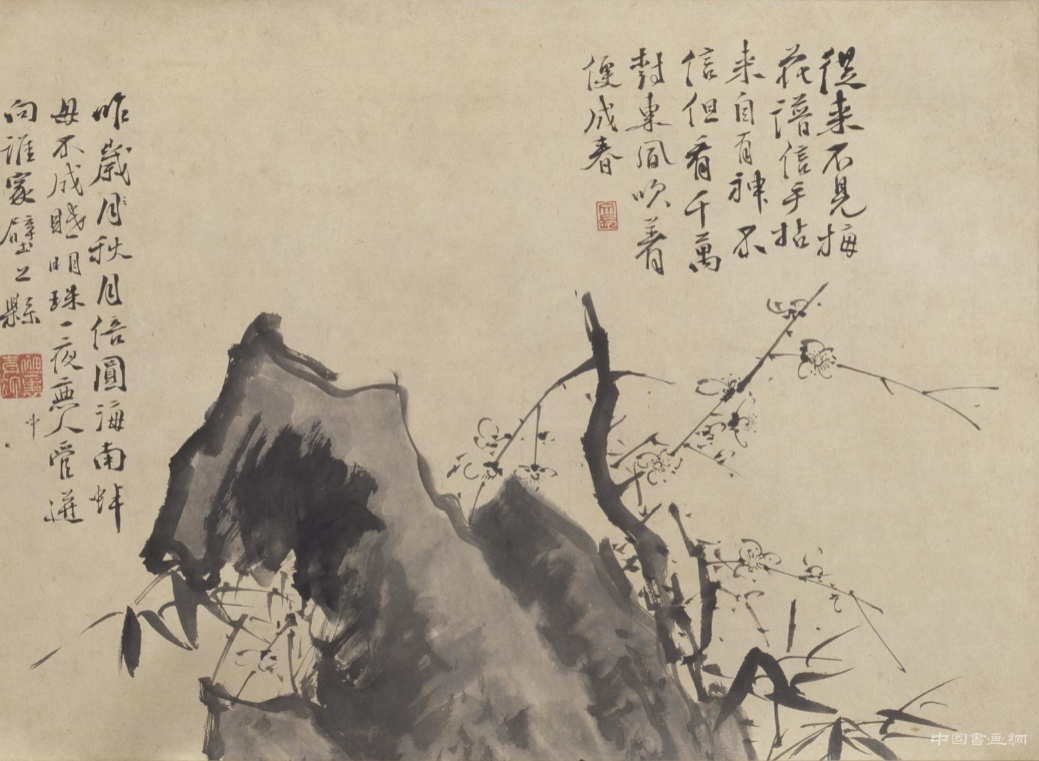 從来不見梅
花譜信手拈
来自有神不
信但看千萬
樹東風吹着
便成春
昨歲月秋月倍圓海南蚌
母不成眠明珠一夜無人管迸
向誰家壁上縣
中
中国書画網